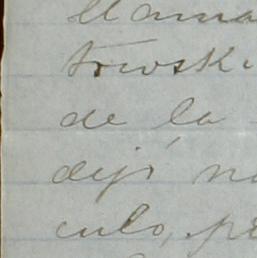 llama
towski
de la
dejé no
culo, pr